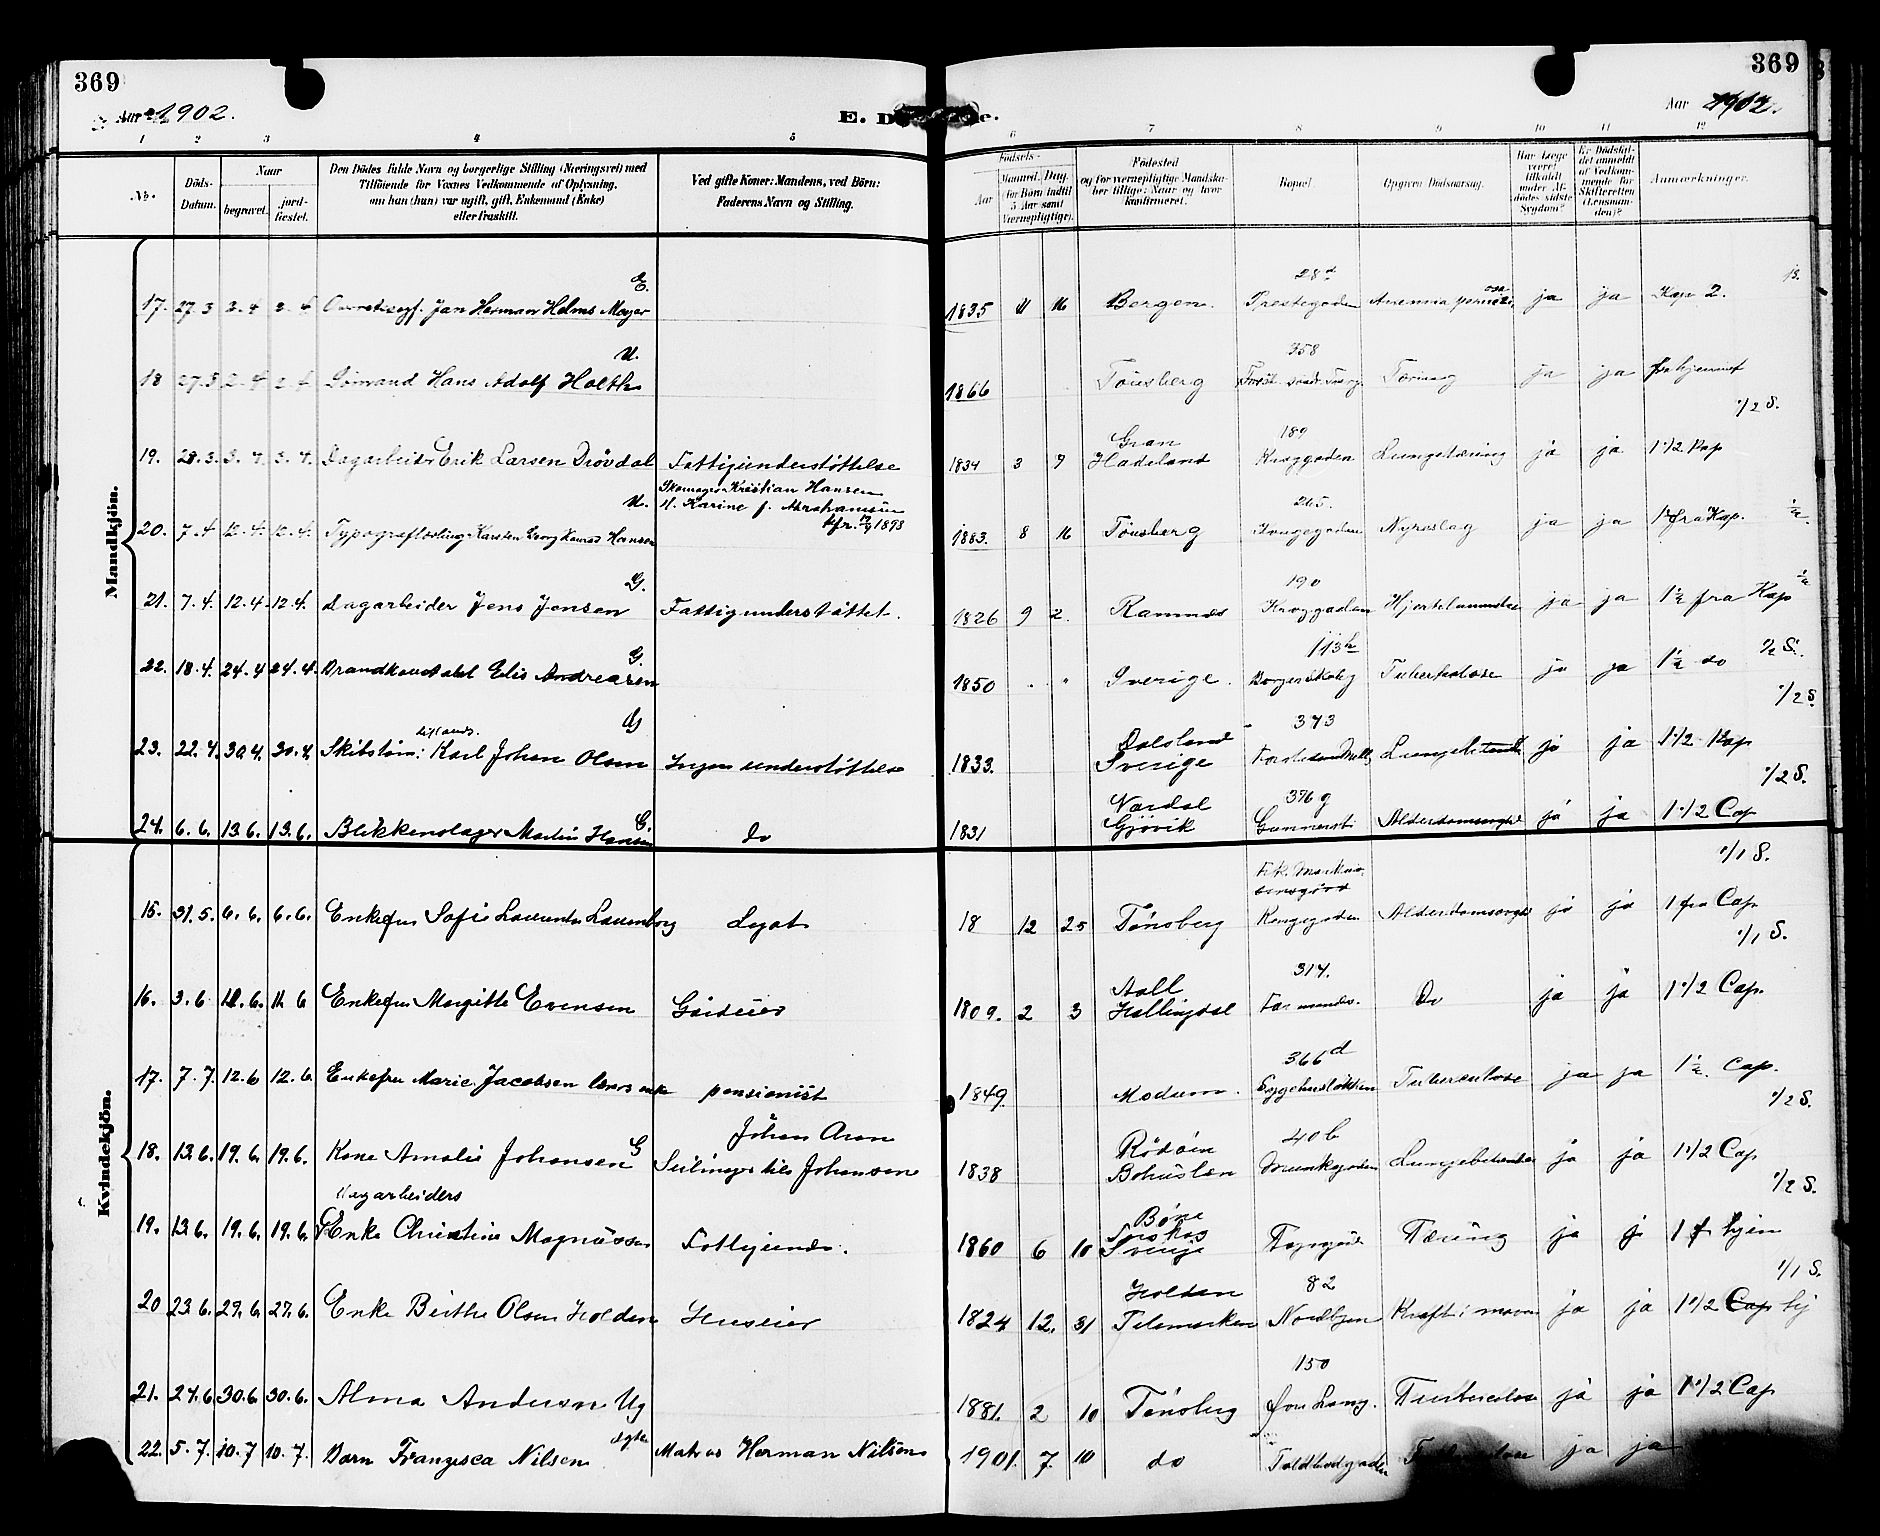 369
369
Aar 1902.
E. D
e.
Aar 1902.
1 2 3 4 5 6 7 8 9 10 11 12
No.
Döds-Datum.
Naar
begravet.
jord-fæstet.
Den Dödes fulde Navn og borgerlige Stilling (Næringsvei) med
Tilföiende for Voxnes Vedkommende af Oplysning,
om han (hun) var ugift, gift, Enkemand (Enke)
eller fraskilt.
Ved gifte Koner: Mandens, ved Börn:
Faderens Navn og Stilling.
Födsels-
Aar
Maaned. Dag.
(for Børn indtil
5 Aar samt
Værnepligtige).
Födested
og for værnepligtige Mandska-
ber tillige: Naar og hvor
konfirmeret.
Bopæl.
Opgiven Dødsaarsag.
Har Læge
været
tilkaldt
under Af-
dødes sidste
Sygdom?
Er Dödsfal-
det anmeldt
af Vedkom-
mende for
Skifteretten
(Lensman-
den)?
Anmærkninger.
Mandkjön.
17. 27.3 2.4 2.4 Jan Herman Helms Meyer E. 1835 11 16 Bergen. 28 d Prestegaden Anemia ja ja Kap 2.
18 27.3 2.4 2.4 Sömand Hans Adolf Holth U. 1866 Tönsberg 358 Tæring ja ja fra hjemmet
1/2 S.
19. 28.3. 3.4. 3.4. Dagarbeider Erik Larsen Drövdal Fattigunderstöttelse 1834 3 9 Gran Hadeland 189 Kroggaden Lungetæring ja ja 1 1/2 Kap
20. 7.4 12.4. 12.4. Typograflærling Karsten Georg Konrad Hansen U. Skomager Kristian Hansen H. Karine f. Abrahamsen 1893 1883. 8 16 Tönsberg 265. Kongegaden ja ja fra Kap. 1/2
21. 7.4. 12.4. 12.4. Dagarbeider Jens Jensen G. Fattigunderstöttet. 1826 9 2. Ramnes 190 Kroggaden Hjertelammelse ja ja 1 1/2 fra Kap 1/2
22. 18.4. 24.4 24.4. Brandkonstabel Elis Andreasen G. 1850 . " Sverige. 113 b Tuberkulose ja ja 1 1/2 do 1/2 S.
1/2 S
23. 22.4. 30.4. 30.4. Skibstöm: Karl Johan Olsen G Ingen understöttelse 1833. Dalsland Sverige 373 ja ja 1 1/2 Kap
1/2 S.
24. 6.6. 13.6. 13.6. Blikkenslager Martin Hansen G. do 1831 Vardal Gjövik 376 g Gunnersb Alderdomssvaghed ja ja 1 1/2 Cap
1/1 S.
Kvindekjön.
15. 31.5. 6.6. 6.6. Enkefru Sofie Laurentze Lauenborg Legat 18 12 25 Tönsberg Kongegaden Alderdomssvaghed ja ja 1 fra Cap
1/1 S.
16. 3.6. 11.6. 11.6 Enkefru Margitte Evensen Gårdeier 1809. 2 3 Aall Hallingdal 314. Do ja ja 1 1/2 Cap.
17. 7.7. 12.6 12.6. Enkefru Marie Jacobsen enke pensionist 1849. Modum. 366 d Tuberculose ja ja 1 1/2 Cap.
1/2 S.
18. 13.6. 19.6. 19.6. Kone Amalie Johansen G Johan Aron Johansen 1838 Rödöen Bohuslen 40 b Munkegaden Lungebetændelse ja ja 1 1/2 Cap
1/2 S.
19. 13.6. 19.6. 19.6. Dagarbeiders Enke Christine Magnussen Fattigunds. 1860 6 10 Sverige Tæring ja j 1 f hjem
1/1 S.
20 23.6. 27.6. 27.6. Enke Birthe Olsen Holden Huseier 1824 12. 31 Holden Telemarken 82 Nordbyen Kræft i maven ja ja 1 1/2 Cap hj
21. 24.6 30.6 30.6. Alma Andersen Ug 1881. 2 10 Tönsberg 150 Övre Lang. Tuberculose ja ja 1 1/2 Cap
22. 5.7. 10.7 10.7. Barn Franzisca Nilsen dgte Matros Herman Nilsen 1901. 7. 10 do Toldbodgaden ja ja